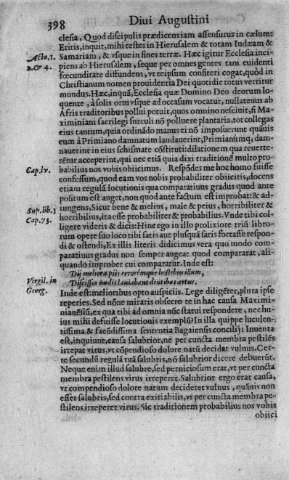 398 Diui Augustini
clesia. Quod discipulis prædicens iam assensurus in cælum:
Eritis, inquit, mihi testes in Hierusalem & totam Iudæam &
Acto.1. Samariam, & vsque in fines terræ. Hæc igitur Ecclesia inci-
2. & 4. piens ab Hierusalem, seque per omnes gentes tam euidenti
fœcunditate diffundens, vt reipsum consiteri cogat, quòd in
Christianum nomen prouidentia Dei quotidie totus vertitur
mundus. Hæc, inquã, Ecclesia quæ Domino Deo deorum lo-
quente, à solis ortu vsque ad occasum vocatur, nullatenus ab
Afris traditoribus pollui potuit, quos omnino nescit, si Ma-
ximiani sacrilegi furculi nõ polluere plantaria, tot collegas
eius tantum, quia ordinãdo manus ei nõ imposuerunt quãuis
eum à Primiano damnatum laudauerint, Primianumq; dam-
nauerint
rẽtur acceperint, qui nec etiã quia dixi traditionẽ multo pro-
Cap. lv. babilius nos vobis obiicimus. Respõdes me hoc homo fuisse
confessum, quod eam vos nobis probabiliter obiicitis, docens
etiam regulã locutionis qua comparatiuus gradus quod ante
positum est auget, non quod ante factum est improbat & ad-
iungens, Sicut bene & melius, male & peius, horribiliter &
Sup. lib. 3 horribilius, ita esse probabiliter & probabilius. Vnde tibi col-
Cap. 73. ligere videris & dicis: Hinc ergo in illo prolixiore triũ libro-
rum opere suo loco tibi satis aut plusquã satis fortasse respon-
di & ostendi, Ex illis literis didicimus vera quo modo com-
paratiuus gradus non semper auget quod comparatar, ali-
quando improbet cui comparatur. Inde est:
Virgil. in Dij meliora piis erroremque hostibus illum,
Georg. Discissos nudis laniabant dentibus artus.
Inde est melioribus opto auspiciis. Lege diligẽter, plura ipse
reperies. Sed nõne miraris obsecro te in hac causa Maximi-
nianẽsiũ, ea qua tibi ad omnia nõs statui respondere, nec huius
mihi defuisse locutionis exemplũ? In illa quippe luculen-
tissima & facũdissima sententia Bagaiensis concilij: Inuenta
est, inquiunt, causa saluberior, ne per cuncta membra pestilẽs
irrepat virus, vt cõpendioso dolore natũ decidat vulnus. Cer-
te secundũ regulã tuã salubris, nõ salubrior dicere debuerũt.
Neque enim illud salubre, sed perniciosum erat, vt per cuncta
membra pestilens virus irreperet. Salubrior ergo erat causa,
vt compendioso dolore natum decideret vulnus, quãuis non
esset salubris, sed contra exitiabilis, vt per cuncta membra pe-
stilens irreperet virus. Sic traditionem probabilius nos vobis
obiici